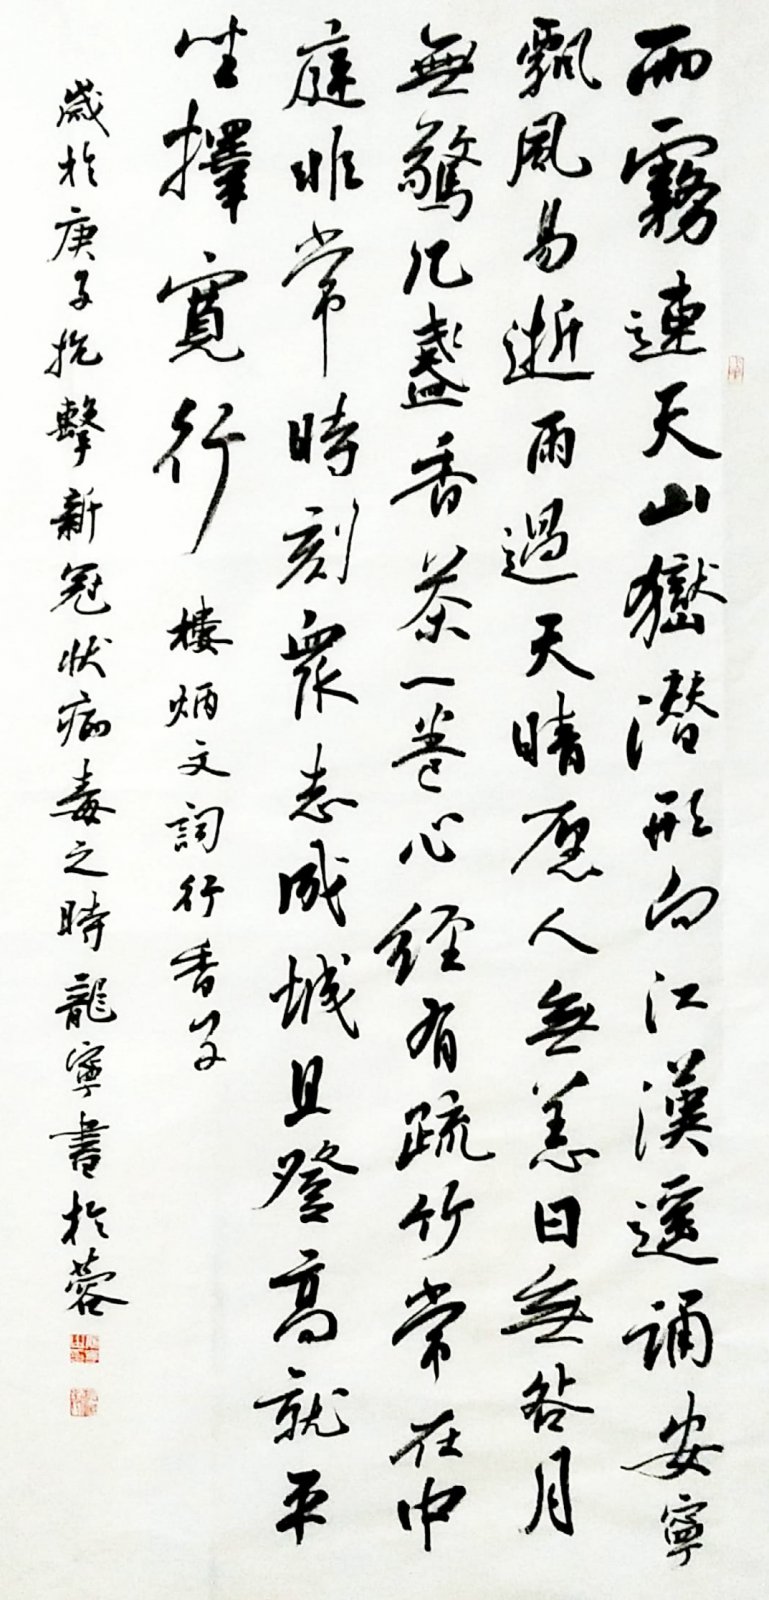 雨霧連天山嶽潜形向江漢遥誦安寧
飄風易逝雨過天晴愿人無恙日無咎月
無驚几盞香茶一卷心經有疏竹常在中
庭非常時刻眾志成城且登高就平
坐擇寬行 樓炳文詞行香子
歲於庚子抗擊新冠狀病毒之時龍寧書於蓉